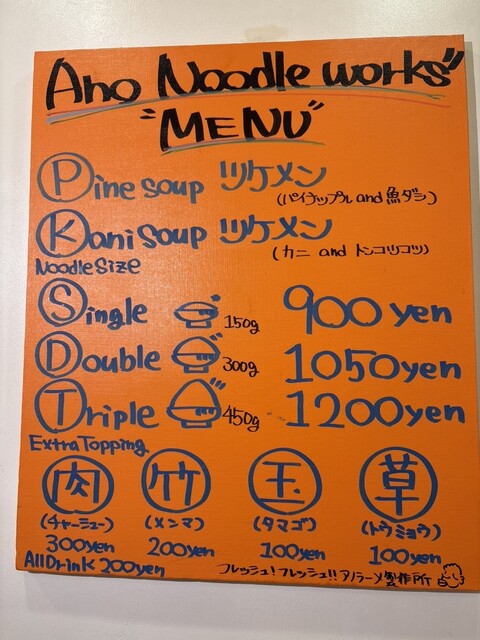 Aho Noodle works"
"MENU"
Pine soup ツケメン
(パイナップル and 魚ダシ)
Kani soup ツケメン
(カニ and トンコツコツ)
Noodle Size
Single 150g 900 yen
Double 300g 1050yen
Triple 450g 1200yen
Extra Topping
肉 竹 玉 草
(チャーシュー) (メンマ) (タマゴ) (トウミョウ)
300yen 200yen 100yen 100yen
All Drink 200yen
フレッシュ!フレッシュ!!アノラーメン製作所